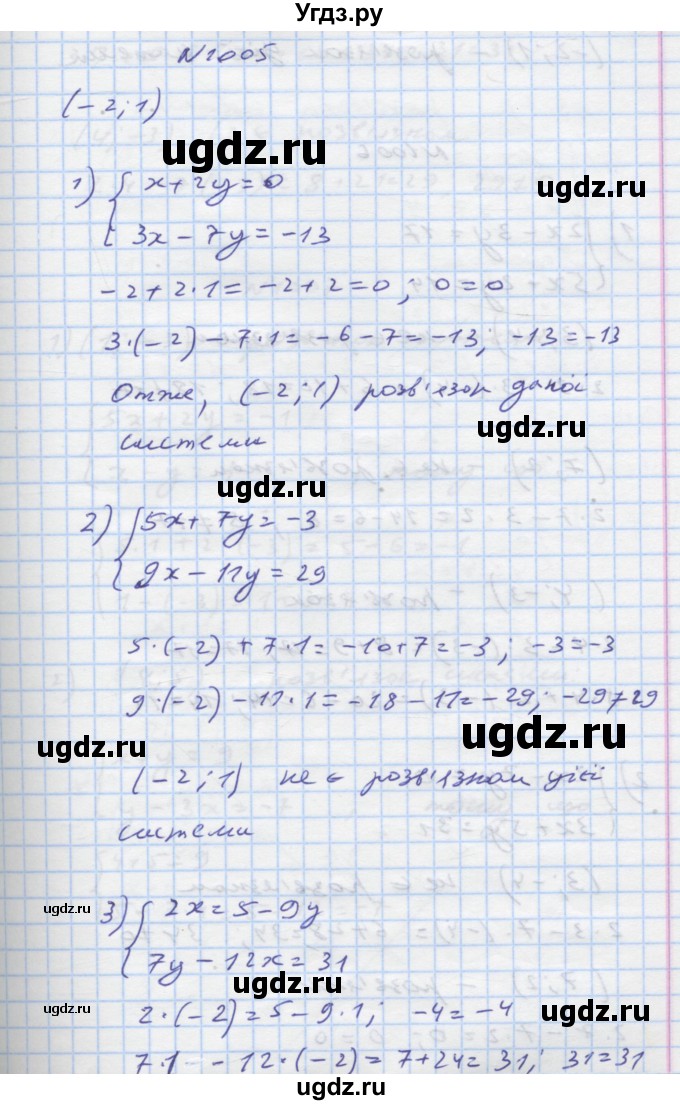 Угдз.ру
N1005
(-2; 1)
ugdz.ru
1) { x + 2y = 0
ugdz.ru
3x - 7y = -13
-2 + 2·1 = -2 + 2 = 0; 0 = 0
3·(-2) - 7·1 = -6 - 7 = -13; -13 = -13
Отже, (-2; 1) розв'язок даної
ugdz.ru
системи
ugdz.ru
2) { 5x + 7y = -3
9x - 11y = 29
5·(-2) + 7·1 = -10 + 7 = -3; -3 = -3
9·(-2) - 11·1 = -18 - 11 = -29; -29 ≠ 29
ugdz.ru
ugdz.ru
(-2; 1) не є розв'язком цієї
системи
ugdz.ru
3) { 2x = 5 - 9y
ugdz.ru
7y - 12x = 31
ugdz.ru
ugdz.ru
2·(-2) = 5 - 9·1; -4 = -4
7·1 - 12·(-2) = 7 + 24 = 31; 31 = 31
ugdz.ru